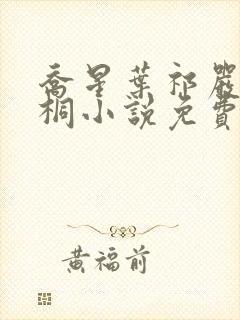 喬星葉祁嚴
桐小說免費
黃福前